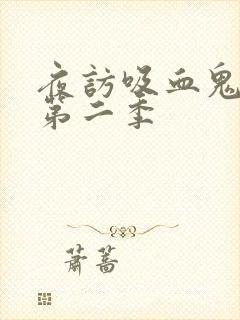 夜訪吸血鬼
第二季
蕭蒿